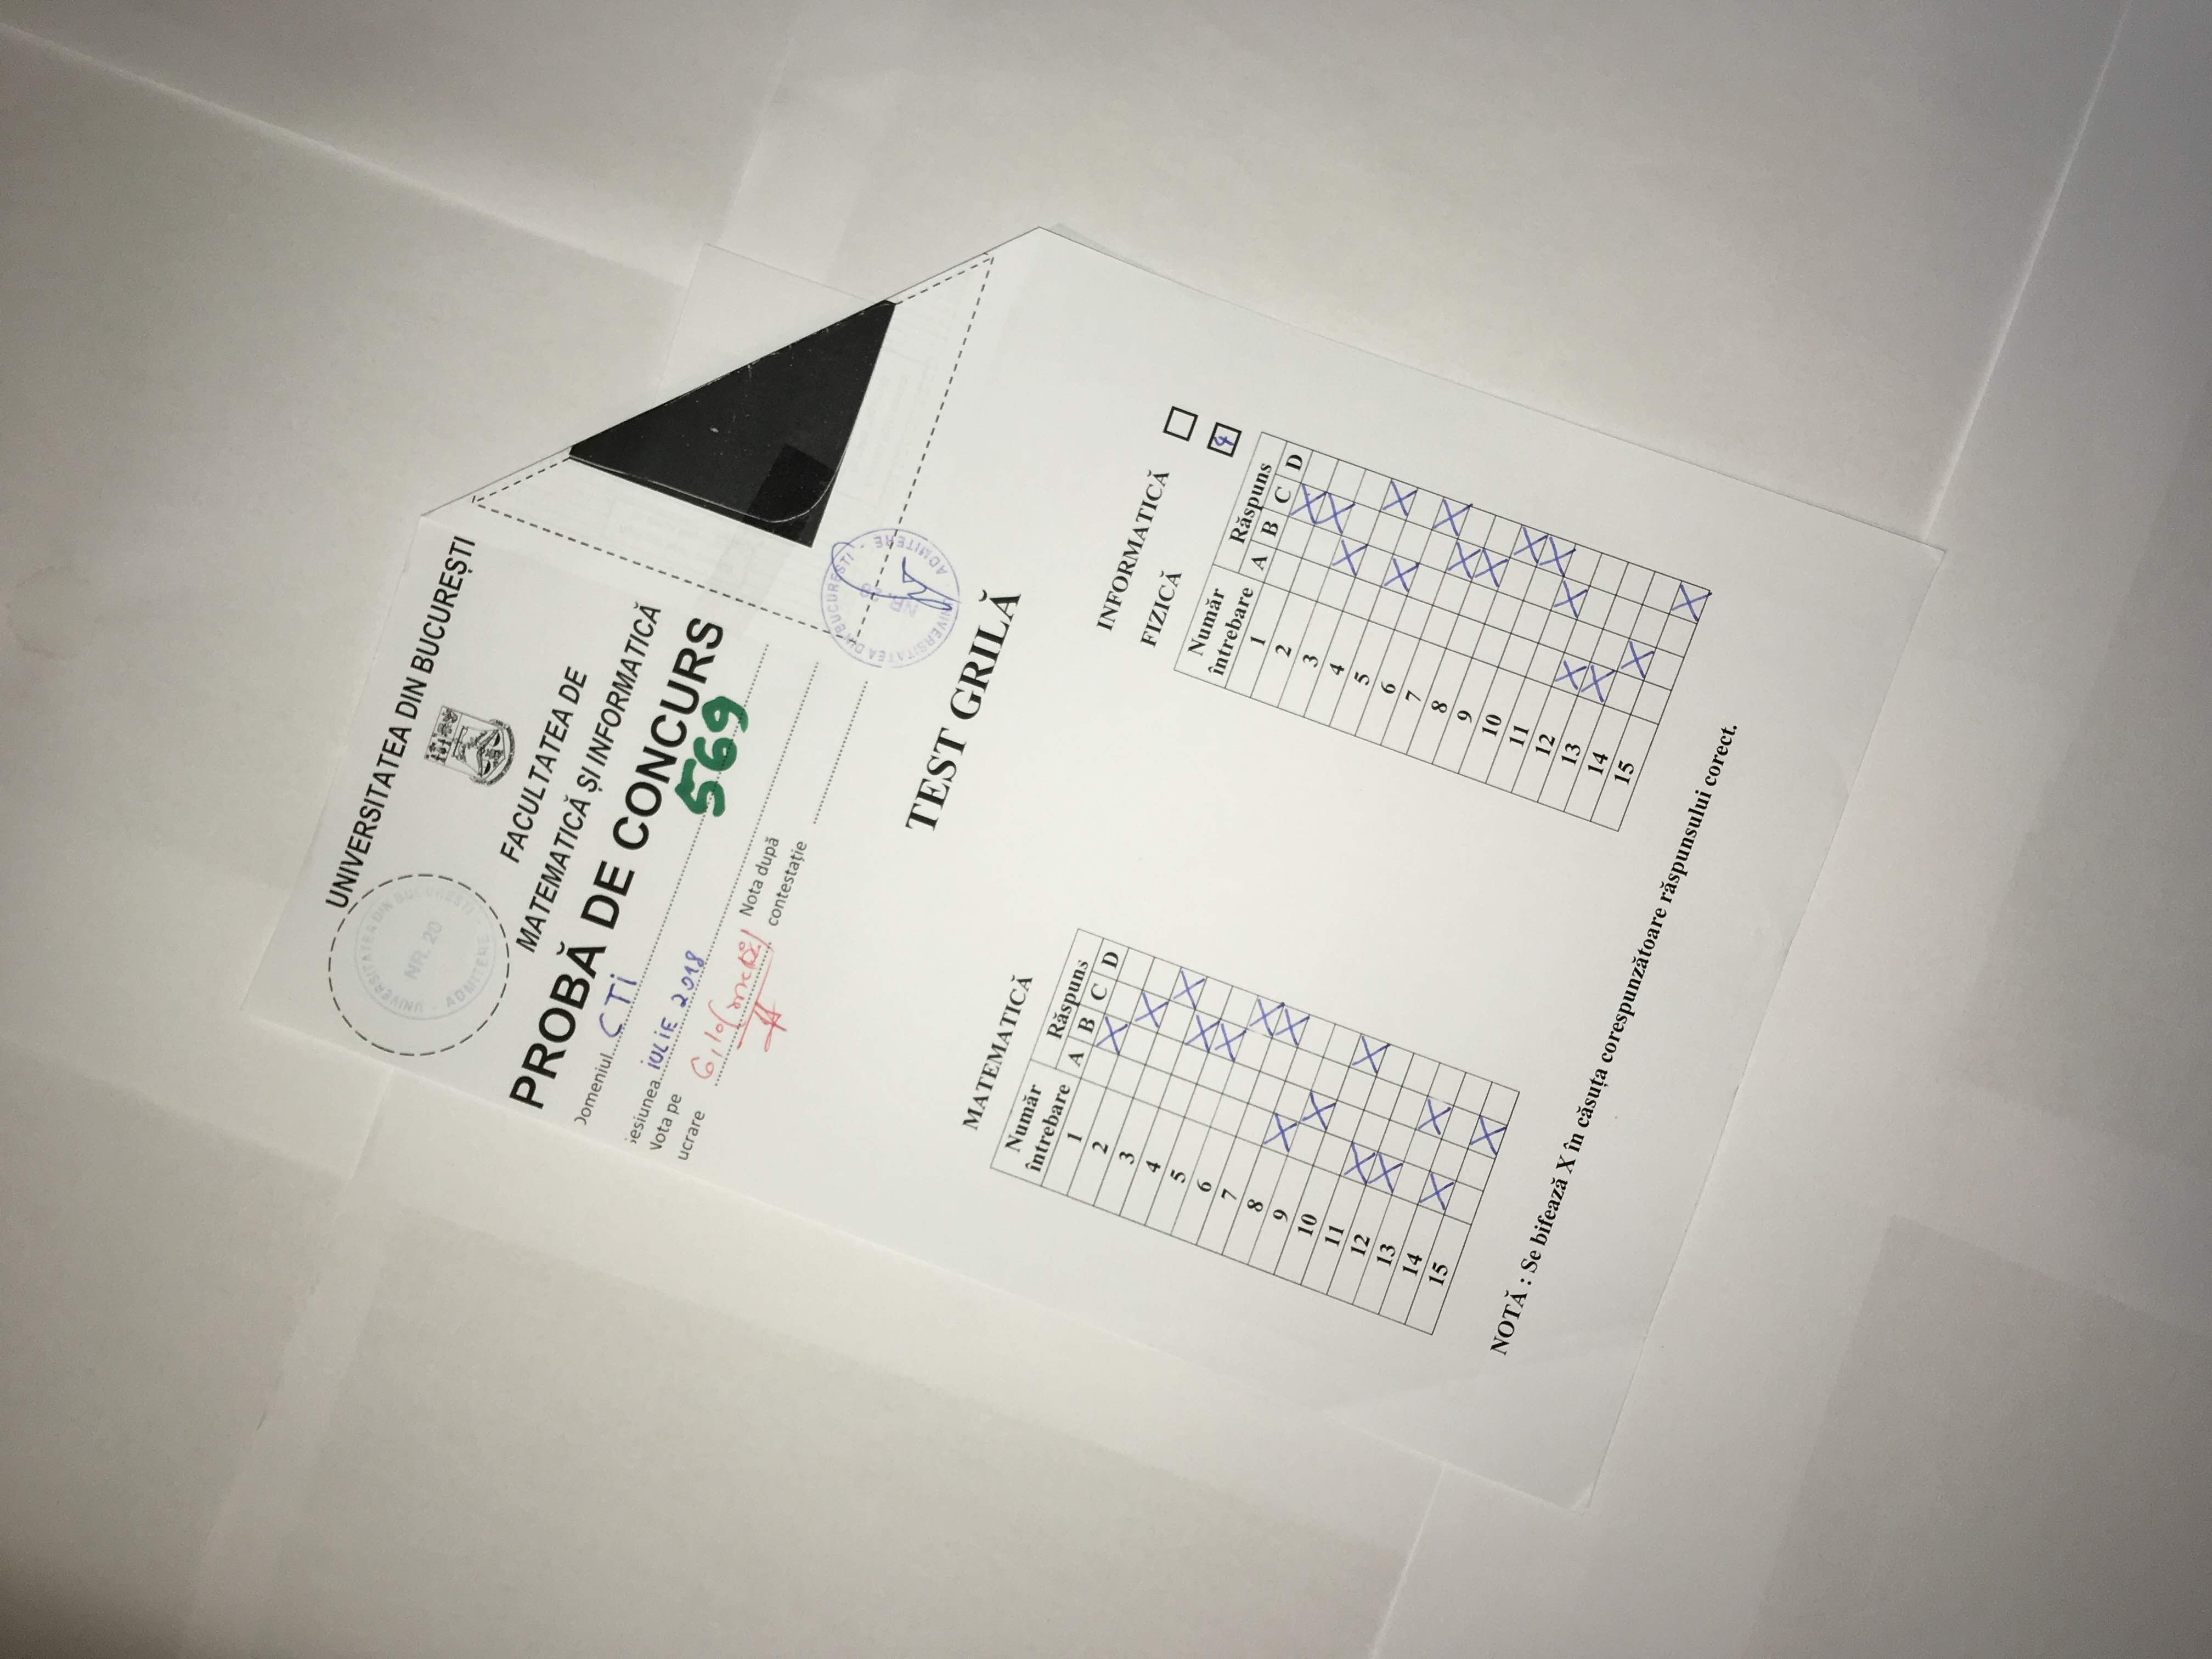 UNIVERSITATEA DIN BUCUREȘTI
UNIVERSITATEA DIN BUCUREȘTI · ADMITERE ·
NR. 20
FACULTATEA DE
MATEMATICĂ ȘI INFORMATICĂ
PROBĂ DE CONCURS
Domeniul CTi
569
Sesiunea iULiE 2018
Nota pe
lucrare 6,10
Nota după
contestație
UNIVERSITATEA DIN BUCUREȘTI · ADMITERE ·
NR. 20
TEST GRILĂ
MATEMATICĂ
Număr întrebare Răspuns
A B C D
1 X
2 X
3 X
4 X
5 X
6 X
7 X
8 X
9 X
10 X
11 X
12 X
13 X
14 X
15 X
INFORMATICĂ
FIZICĂ 4
Număr întrebare Răspuns
A B C D
1 X
2 X
3 X
4 X
5 X
6 X
7 X
8 X
9 X
10 X
11 X
12 X
13 X
14 X
15 X
NOTĂ : Se bifează X în căsuța corespunzătoare răspunsului corect.